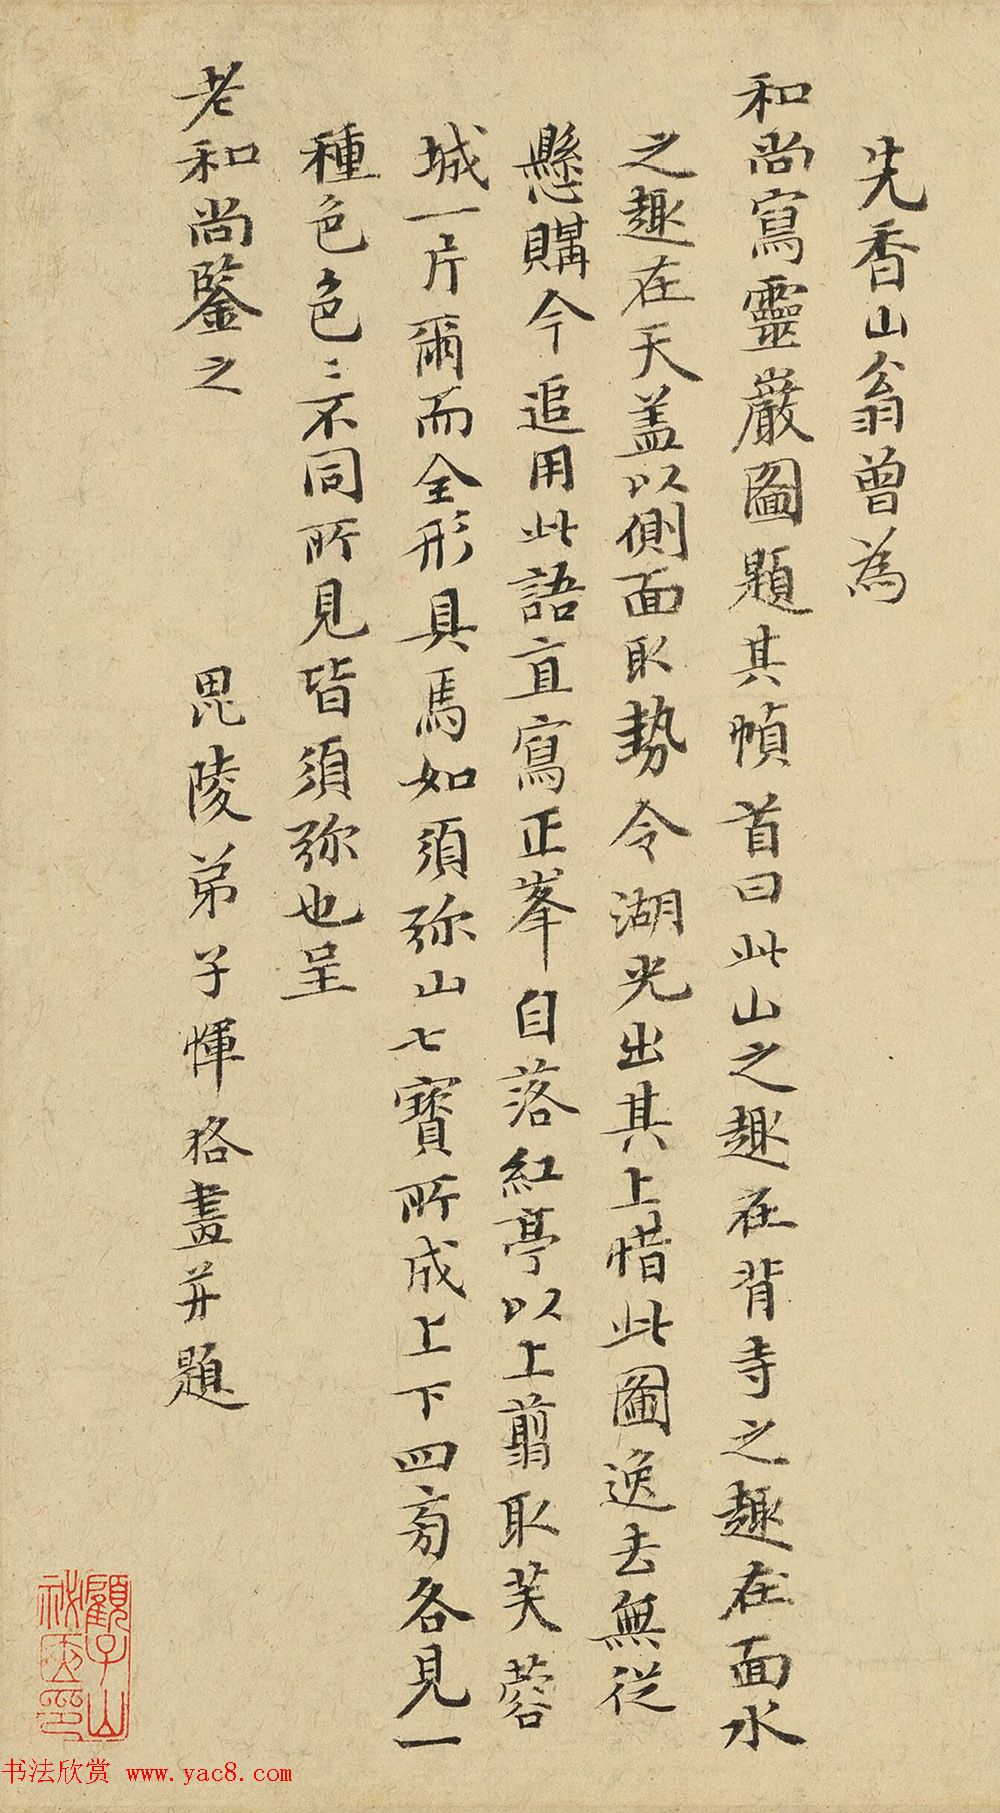 先香山翁曾為
和尚寫靈巖圖題其幀首曰此山之趣在背寺之趣在面水
之趣在天盖以側面取勢令湖光出其上惜此圖逸去無從
懸購今追用此語直寫正峯自落紅亭以上翦取芙蓉
城一片爾而全形具焉如須弥山七寳所成上下四旁各見一
種色色〻不同所見皆須弥也呈
老和尚鑒之
毘陵弟子惲格畫并題
顧子山
祕匧印
书法欣赏 www.yac8.com